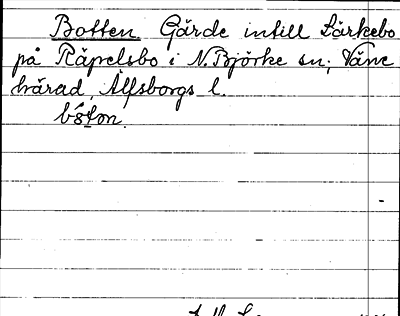 Botten Gärde intill Lärkebo
på Räpelsbo i N. Björke sn; Väne
härad, Älfsborgs l.